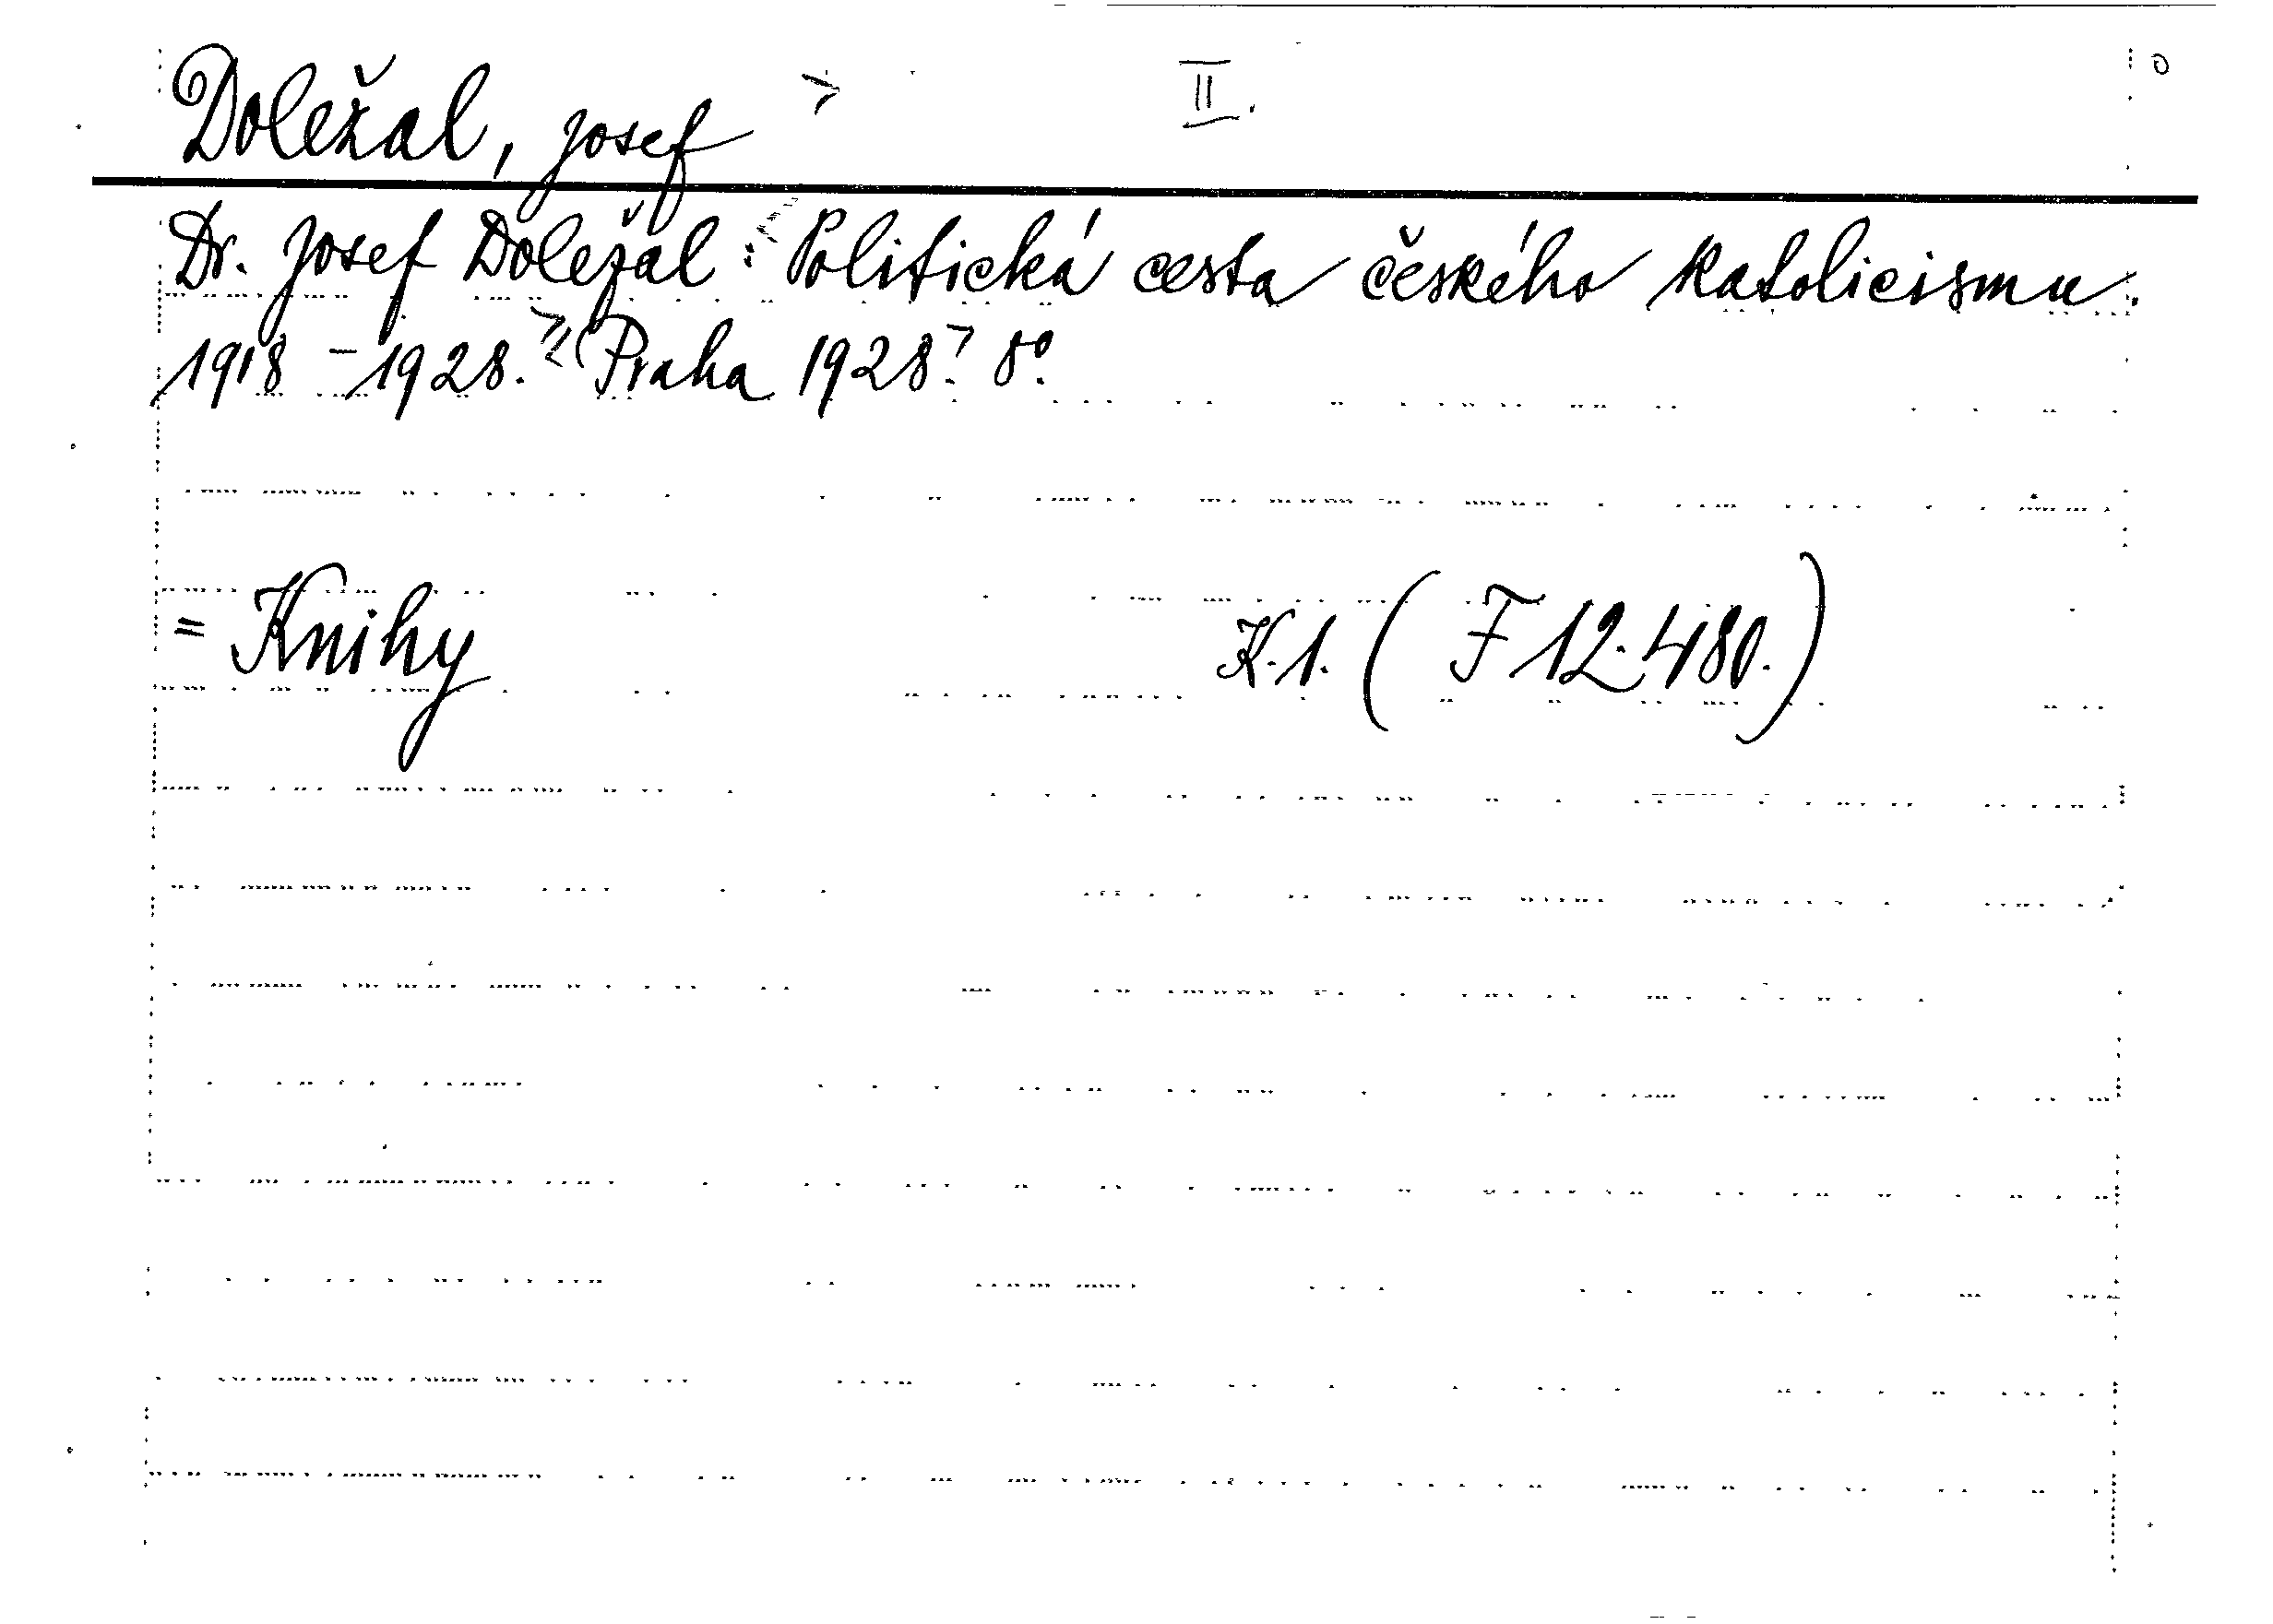 Doležal, Josef II.
Dr. Josef Doležal: Politická cesta českého katolicismu.
1918-1928. Praha 1928. 8°.
= Knihy K.1. (F 12.480.)